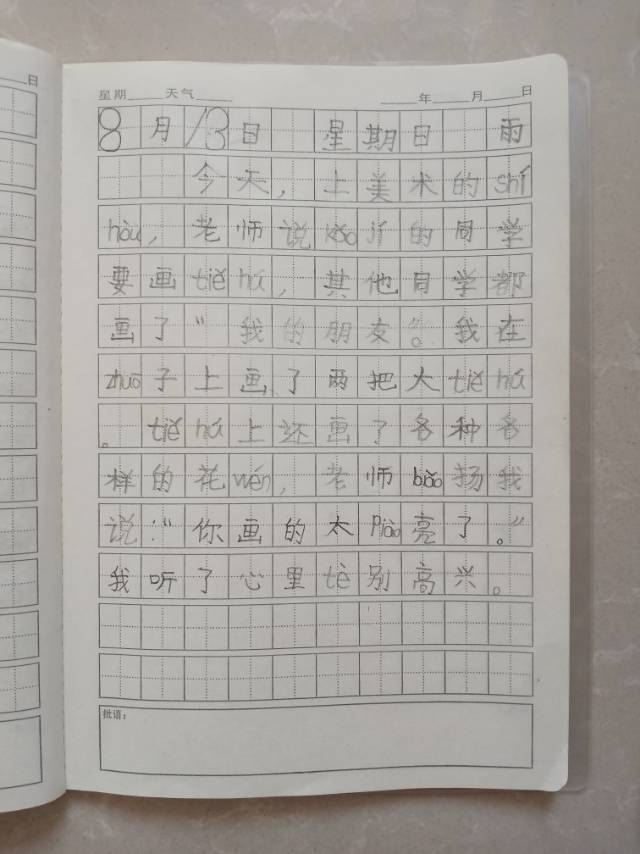 日
星期 天气 年 月 日
8月13日 星期日 雨
今天，上美术的shí
hòu，老师说kǎo jí的同学
要画tiě hú，其他同学都
画了“我的朋友”。我在
zhuō子上画了两把大tiě hú
。tiě hú上还画了各种各
样的花wén，老师biǎo扬我
说：“你画的太piào亮了。”
我听了心里tè别高兴。
批语：